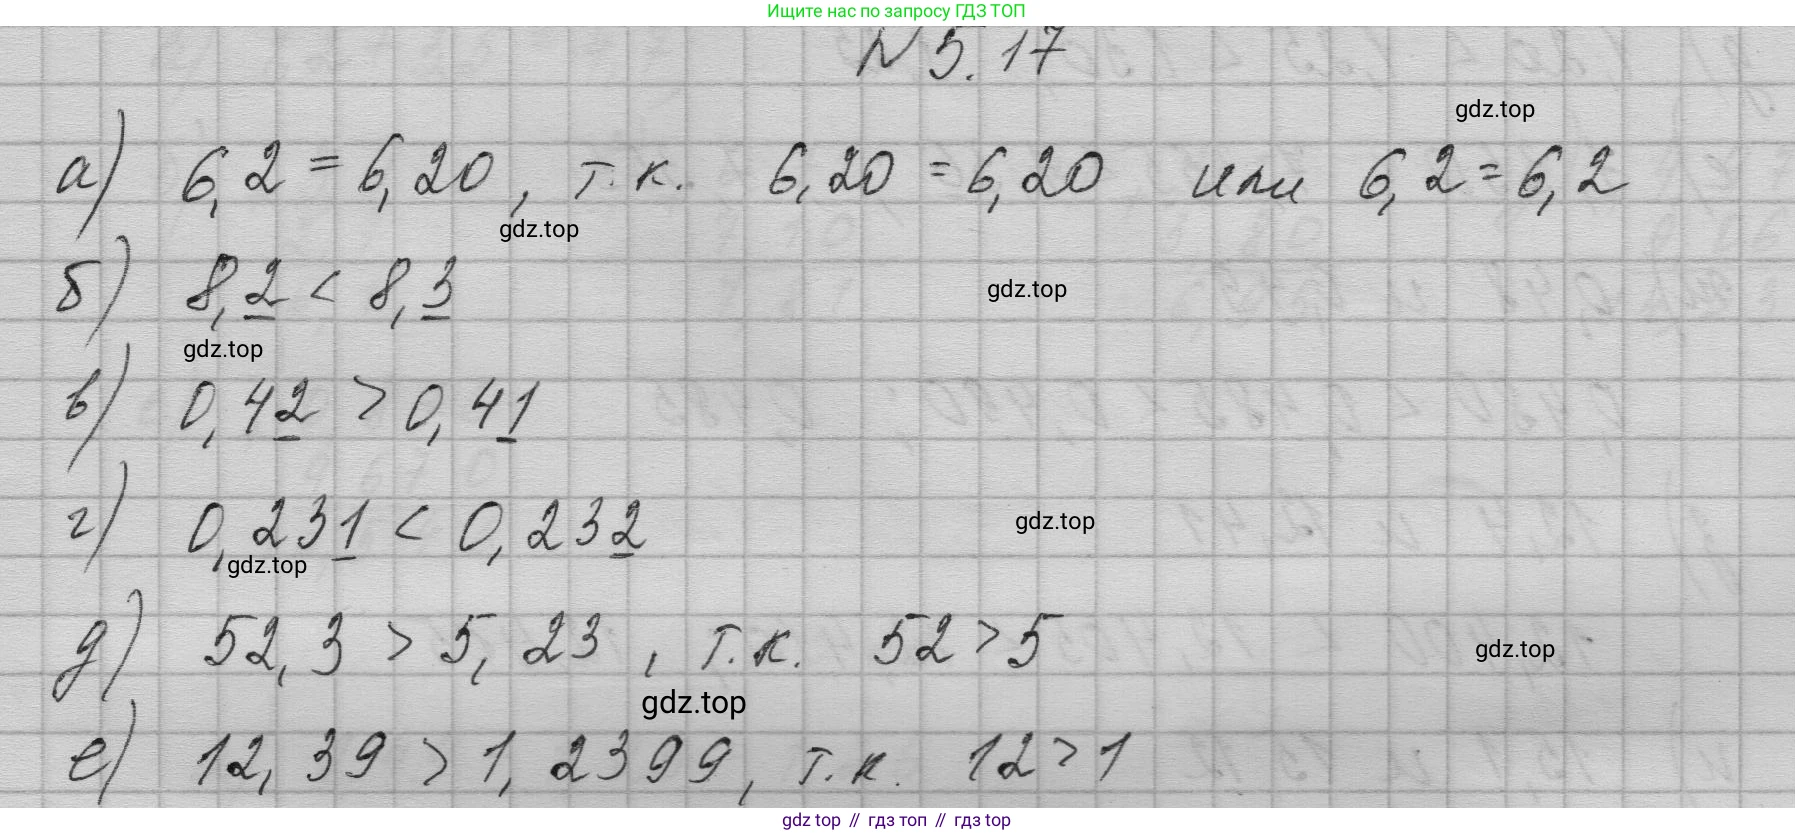 Ищите нас по запросу ГДЗ ТОП
N 5.17
gdz.top
а) 6,2 = 6,20, т.к. 6,20 = 6,20 или 6,2 = 6,2
gdz.top
б) 8,2 < 8,3
gdz.top
gdz.top
в) 0,42 > 0,41
г) 0,231 < 0,232
gdz.top
gdz.top
д) 52,3 > 5,23, т.к. 52 > 5
gdz.top
gdz.top
е) 12,39 > 1,2399, т.к. 12 > 1
gdz top // гдз топ // gdz top